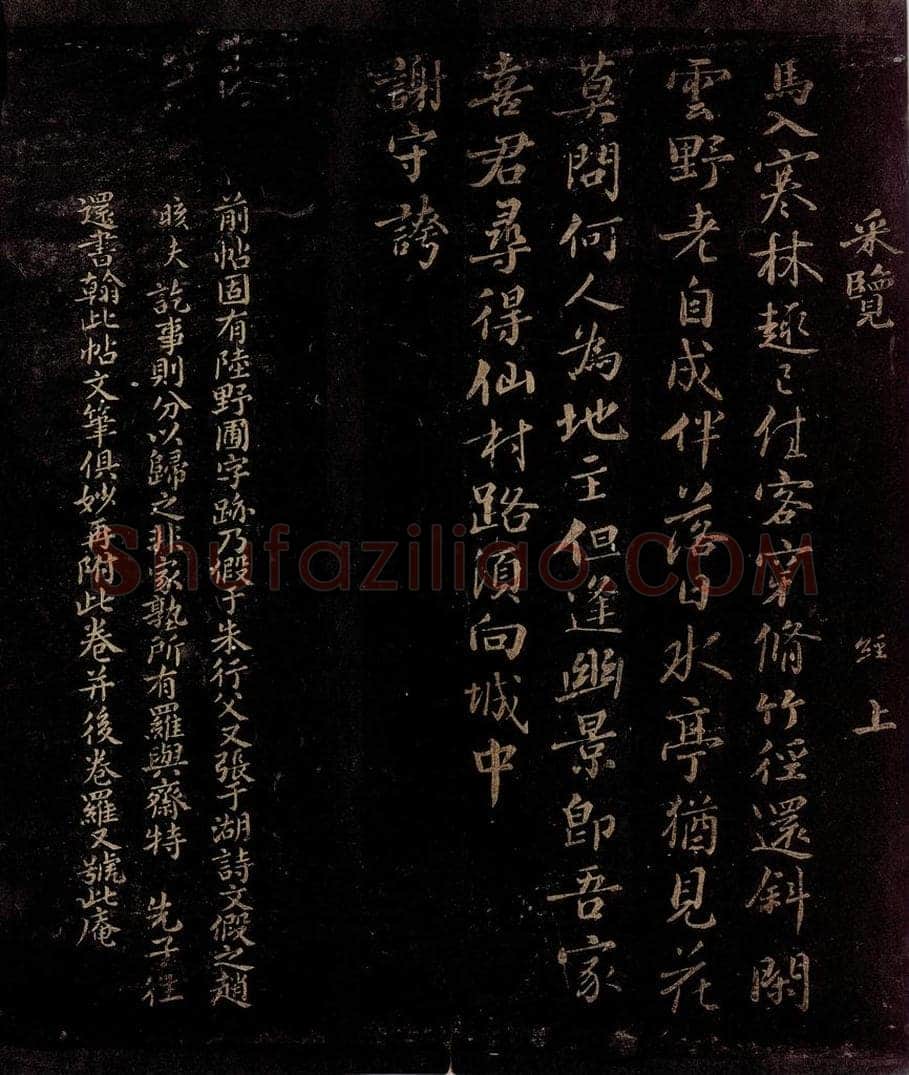 采覽
經上
馬入寒林趣已佳客穿脩竹徑還斜閑
雲野老自成伴落日水亭猶見花
莫問何人為地主但逢幽景即吾家
喜君尋得仙村路須向城中
謝守誇
前帖固有陸野圃字跡乃假于朱行父又張于湖詩文假之趙
晐夫訖事則分以歸之非家塾所有羅與齋特 先子往
還書翰此帖文筆俱妙再附此卷并後卷羅又號此庵
Shufaziliao.COM